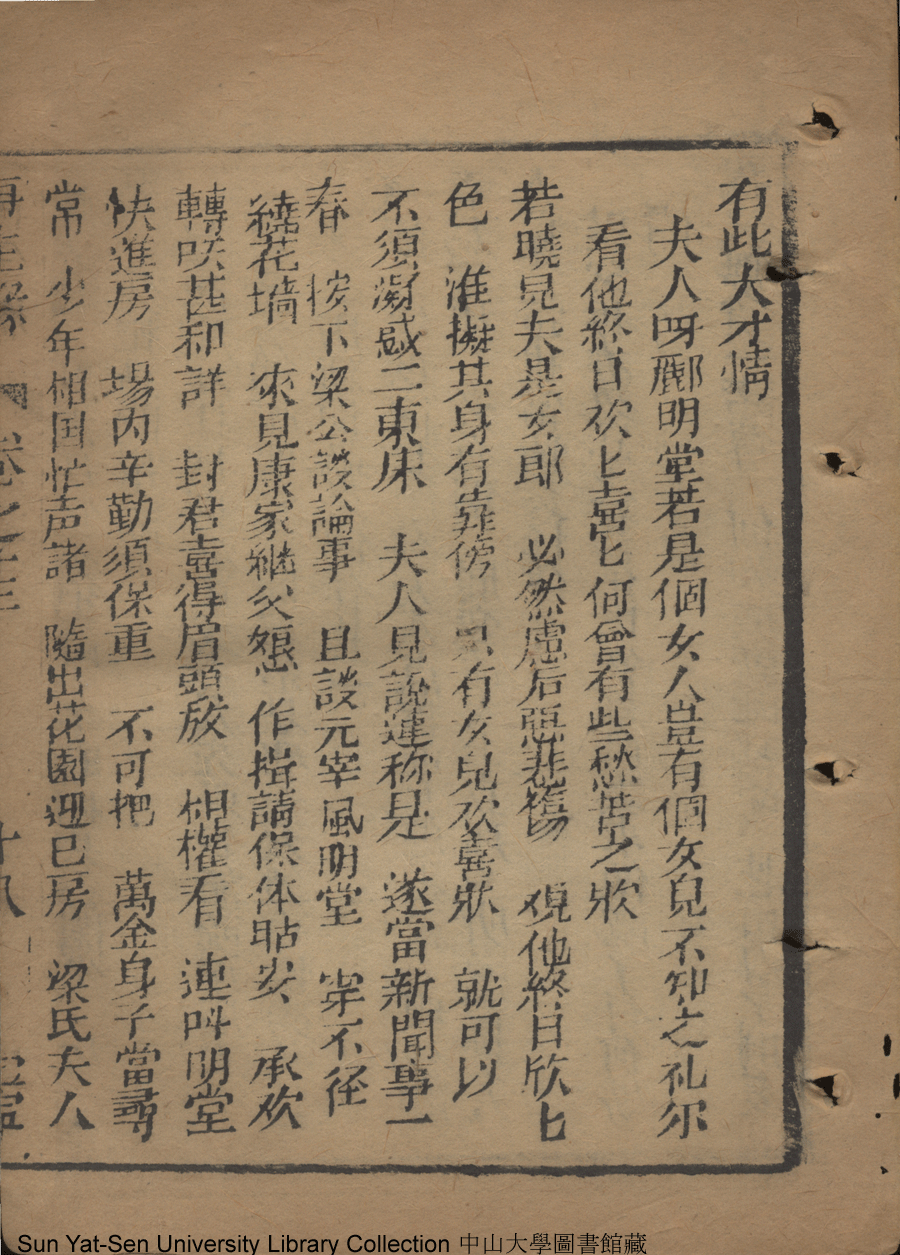 有此大才情
夫人呀酈明堂若是個女人豈有個女兒不知之礼尔
看他終日欢匕喜匕何曾有些愁苦之狀
若曉見夫是女郎 必然慮后惡悲傷 覌他終日欣匕
色 准擬其身有靠傍 只有女兒欢喜狀 就可以
不須凝惑二東床 夫人見說連称是 遂當新聞事一
春 按下梁公談論事 且談元宰風明堂 穿不径
繞花墻 來見康家継父娘 作揖請保体怙安 承欢
轉咲甚和詳 封君喜得眉頭放 相權看 連呌明堂
快進房 場内辛勤須保重 不可把 萬金身子當尋
常 少年相国忙声諾 隨出花園廻已房 梁氏夫人
再生緣 卷之 十八
Sun Yat-Sen University Library Collection 中山大學圖書館藏